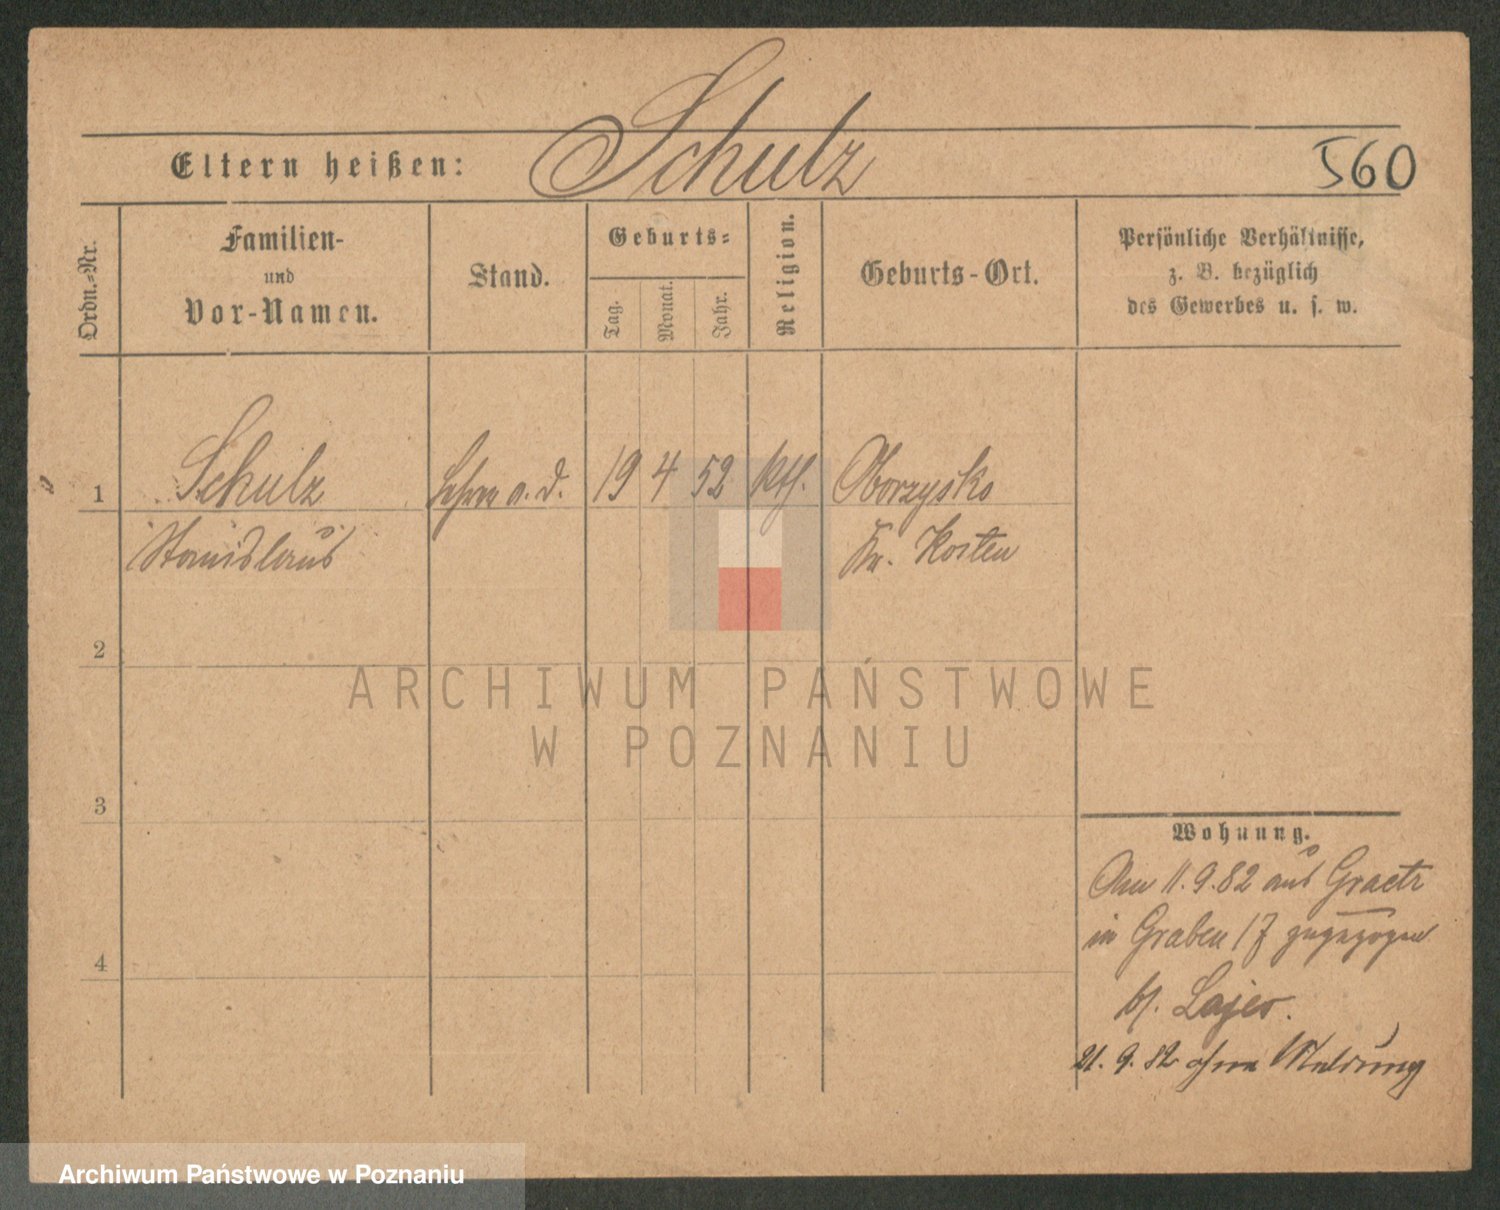 Schulz
Eltern heißen:
560
Ordn.-Nr.
Familien-
und
Vor-Namen.
Stand.
Geburts-
Tag.
Monat.
Jahr.
Religion.
Geburts-Ort.
Persönliche Verhältnisse,
z. B. bezüglich
des Gewerbes u. s. w.
1 Schulz Lehrer a. D. 19 4 52 kth. Oborzysko
Stanislaus Kr. Kosten
2
3
4
Wohnung.
Am 11.9.82 aus Graetz
in Graben 17 zugezogen
b/.
21.9.82 ohne Meldung
ARCHIWUM PAŃSTWOWE
W POZNANIU
Archiwum Państwowe w Poznaniu